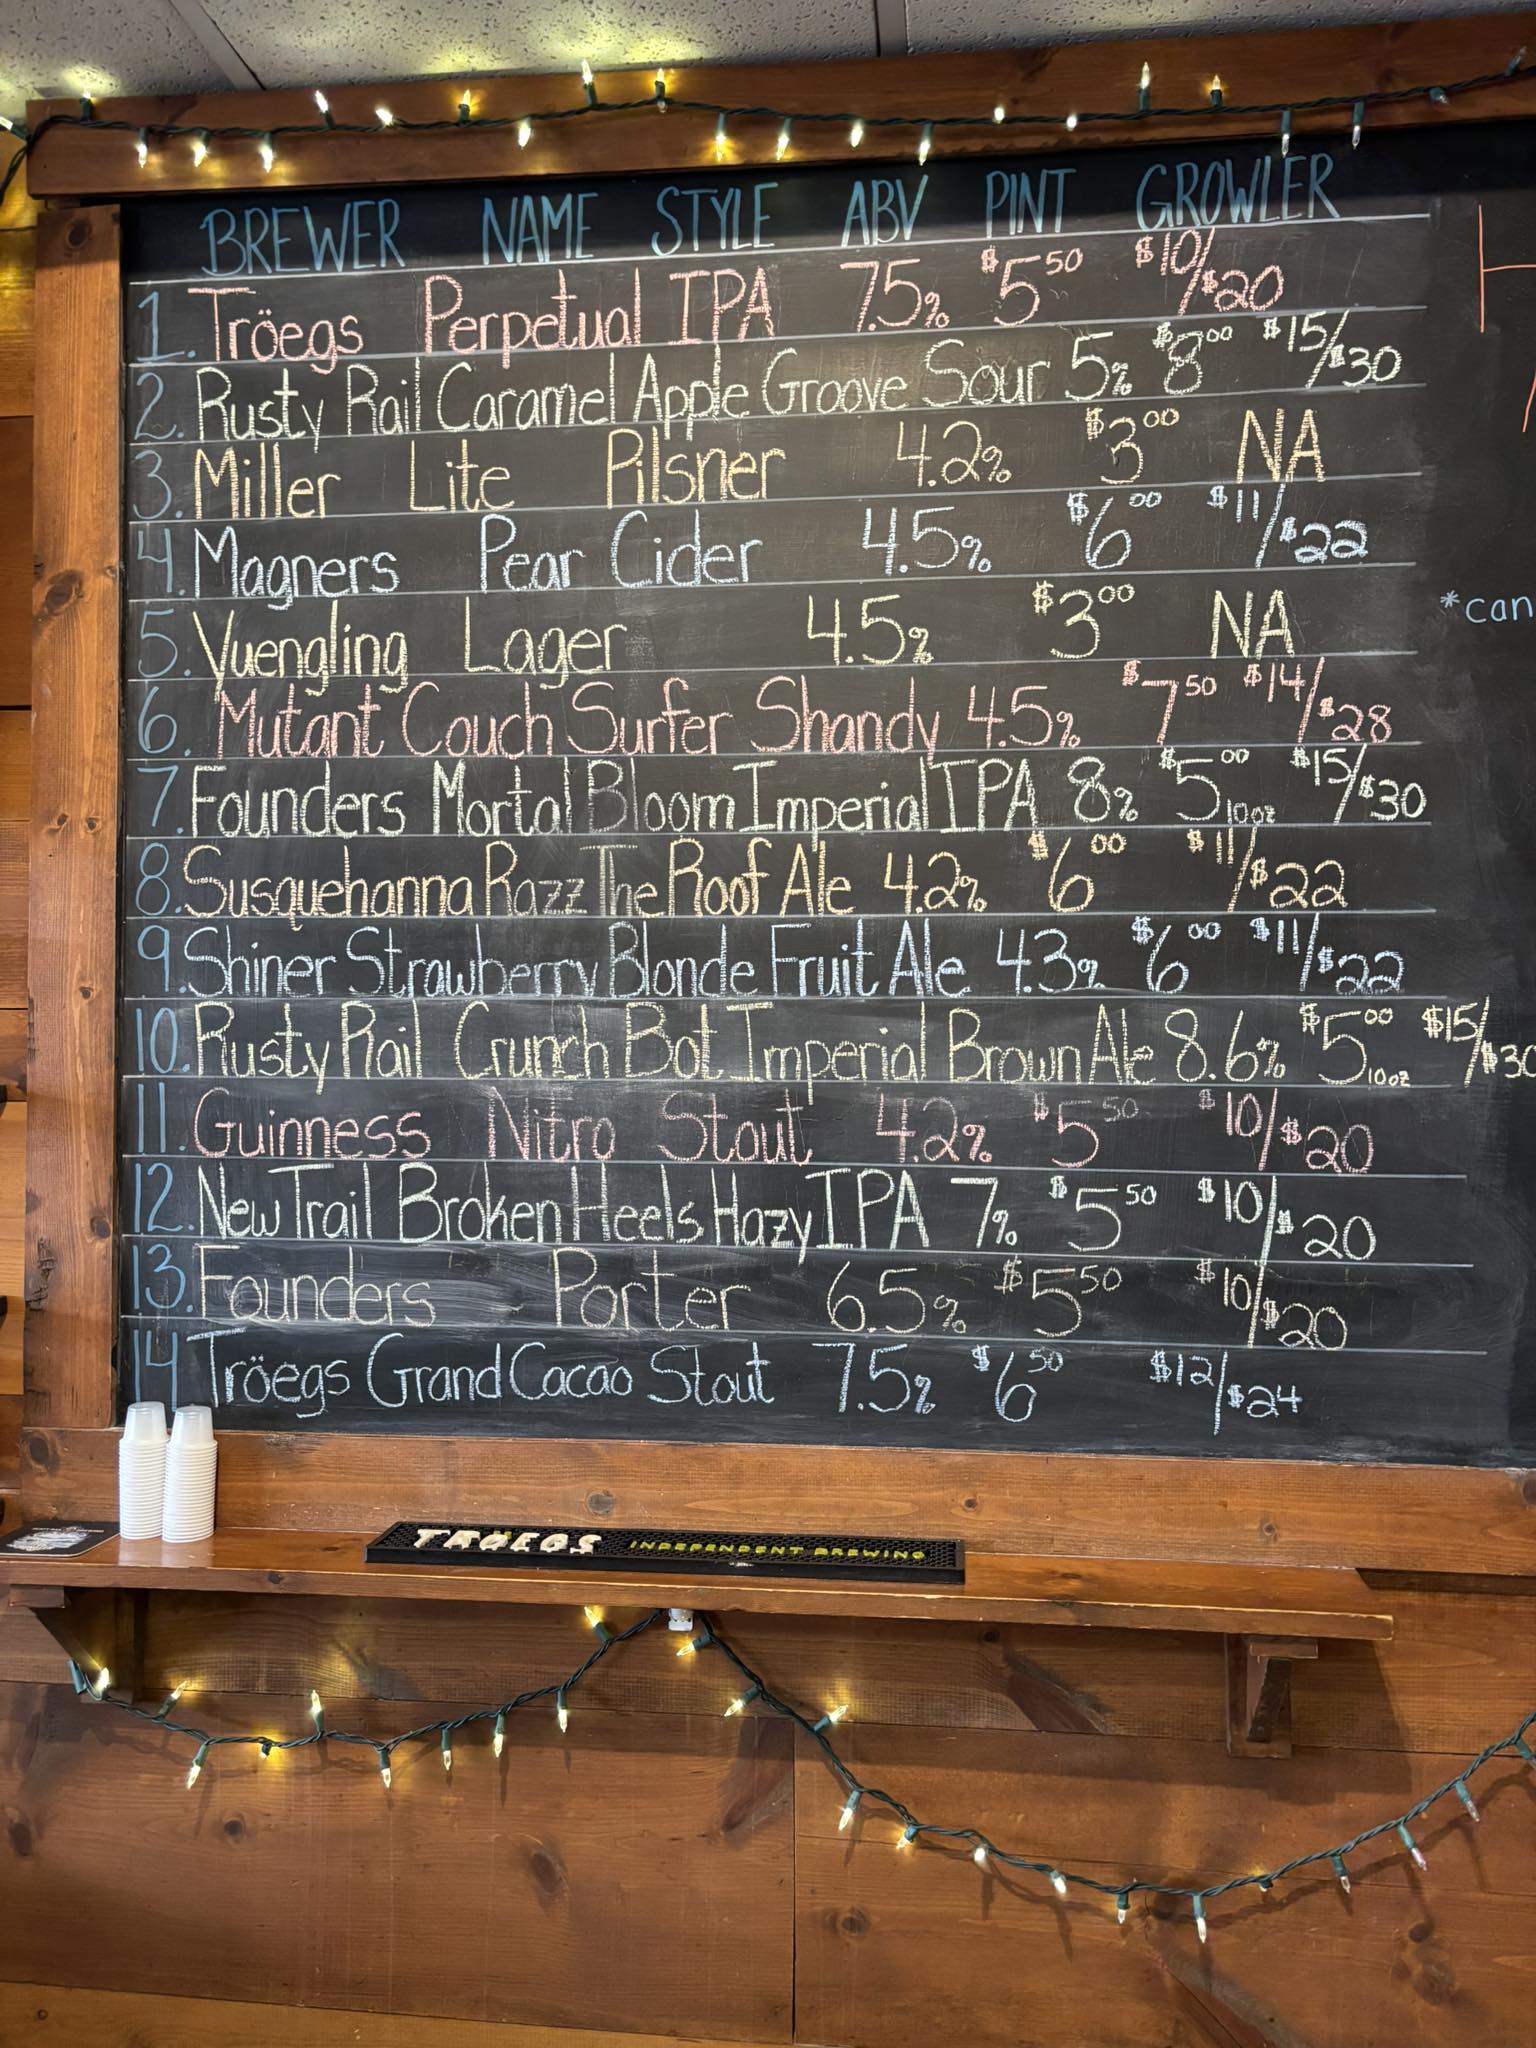 BREWER NAME STYLE ABV PINT GROWLER
1. Tröegs Perpetual IPA 7.5% $5.50 $10/$20
2. Rusty Rail Caramel Apple Groove Sour 5% $8.00 $15/$30
3. Miller Lite Pilsner 4.2% $3.00 NA
4. Magners Pear Cider 4.5% $6.00 $11/$22
5. Yuengling Lager 4.5% $3.00 NA
*can
6. Mutant Couch Surfer Shandy 4.5% $7.50 $14/$28
7. Founders Mortal Bloom Imperial IPA 8% $5.00 10oz $15/$30
8. Susquehanna Razz The Roof Ale 4.2% $6.00 $11/$22
9. Shiner Strawberry Blonde Fruit Ale 4.3% $6.00 $11/$22
10. Rusty Rail Crunch Bot Imperial Brown Ale 8.6% $5.00 10oz $15/$30
11. Guinness Nitro Stout 4.2% $5.50 $10/$20
12. New Trail Broken Heels Hazy IPA 7% $5.50 $10/$20
13. Founders Porter 6.5% $5.50 $10/$20
14 Tröegs Grand Cacao Stout 7.5% $6.50 $12/$24
TRÖEGS INDEPENDENT BREWING